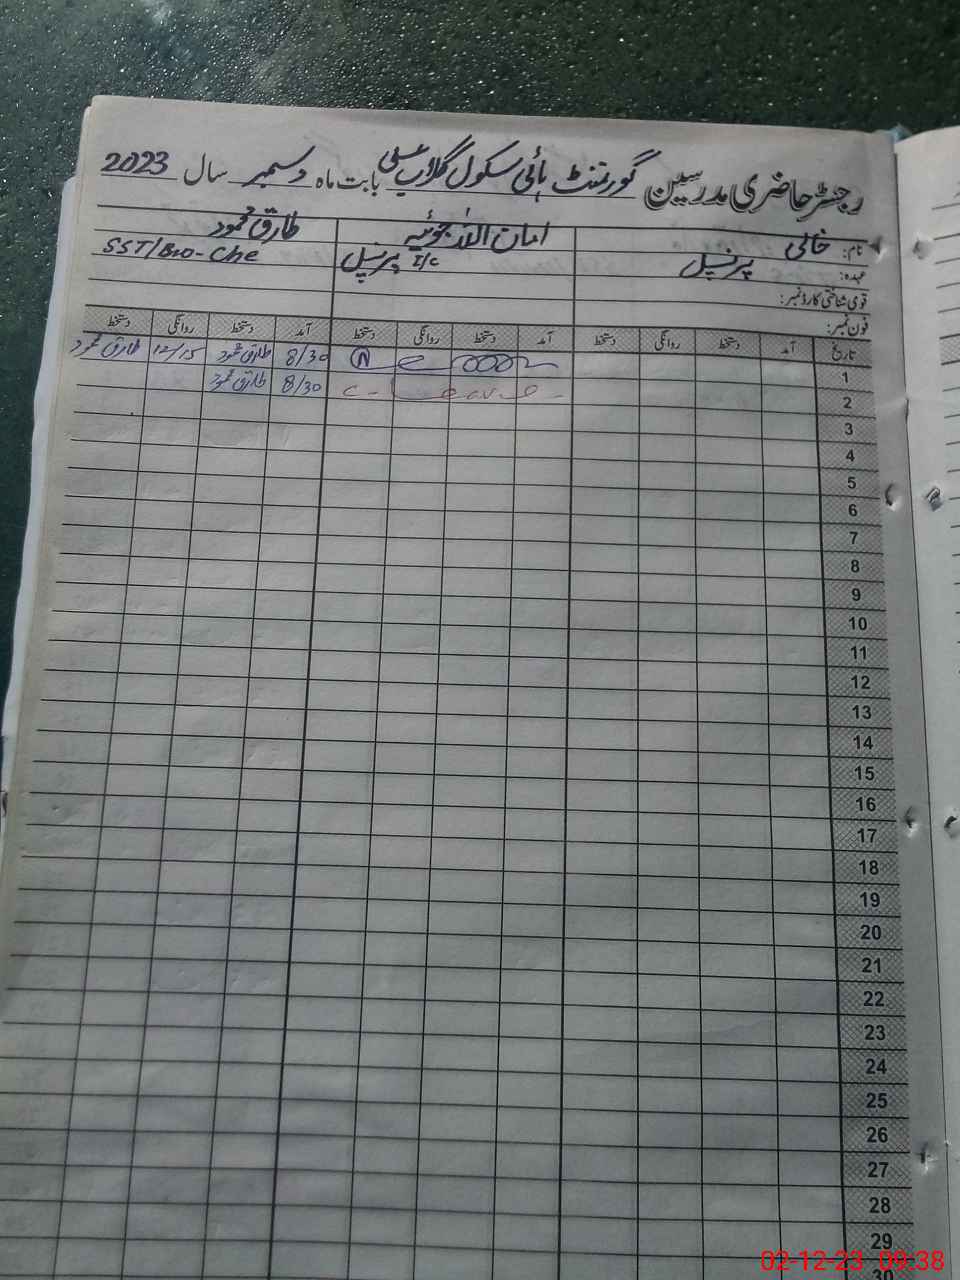 رجسٹر حاضری مدرسین گورنمنٹ ہائی سکول گلاب علی بابت ماہ دسمبر سال 2023
نام: خالی امان اللہ جوئیہ طارق محمود
عہدہ: پرنسپل پرنسپل I/C SST/Bio-Che
قومی شناختی کارڈ نمبر:
فون نمبر:
تاریخ آمد دستخط روانگی دستخط آمد دستخط روانگی دستخط آمد دستخط روانگی دستخط
1 8/30 طارق محمود 12/15 طارق محمود
2 C-Leave- 8/30 طارق محمود
3
4
5
6
7
8
9
10
11
12
13
14
15
16
17
18
19
20
21
22
23
24
25
26
27
28
29
30
02-12-23 09:38